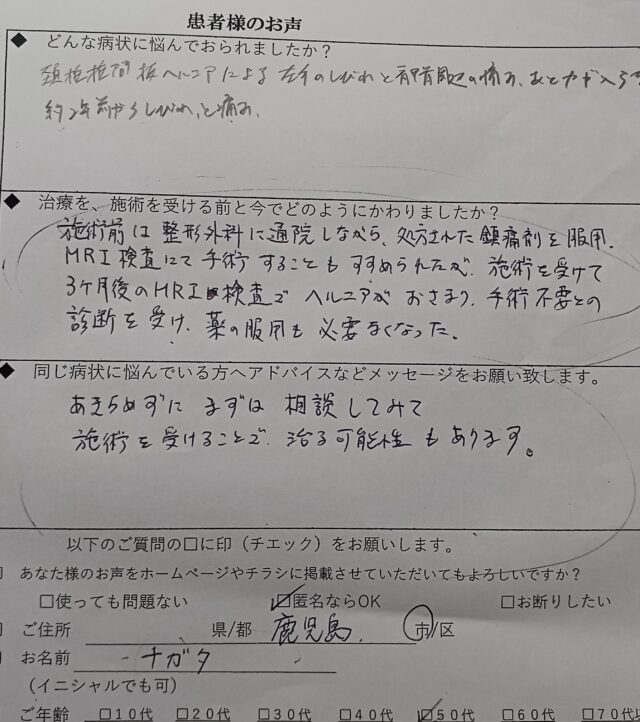 患者様のお声
◆ どんな病状に悩んでおられましたか？
頚椎椎間板ヘルニアによる左手のしびれと肩周辺の痛み、あと力が入らず
約2年前からしびれ、と痛み、
◆ 治療を、施術を受ける前と今でどのようにかわりましたか？
施術前は整形外科に通院しながら、処方された鎮痛剤を服用、
MRI検査にて手術することもすすめられたが、施術を受けて
3ヶ月後のMRI検査でヘルニアがおさまり、手術不要との
診断を受け、薬の服用も必要なくなった。
◆ 同じ病状に悩んでいる方へアドバイスなどメッセージをお願い致します。
あきらめずにまずは相談してみて
施術を受けることで、治る可能性もあります。
以下のご質問の□に印（チエック）をお願いします。
あなた様のお声をホームページやチラシに掲載させていただいてもよろしいですか？
□使っても問題ない ☑匿名ならOK □お断りしたい
ご住所 県/都 鹿児島 市/区
お名前 ナガタ
（イニシャルでも可）
ご年齢 □10代 □20代 □30代 □40代 ☑50代 □60代 □70代